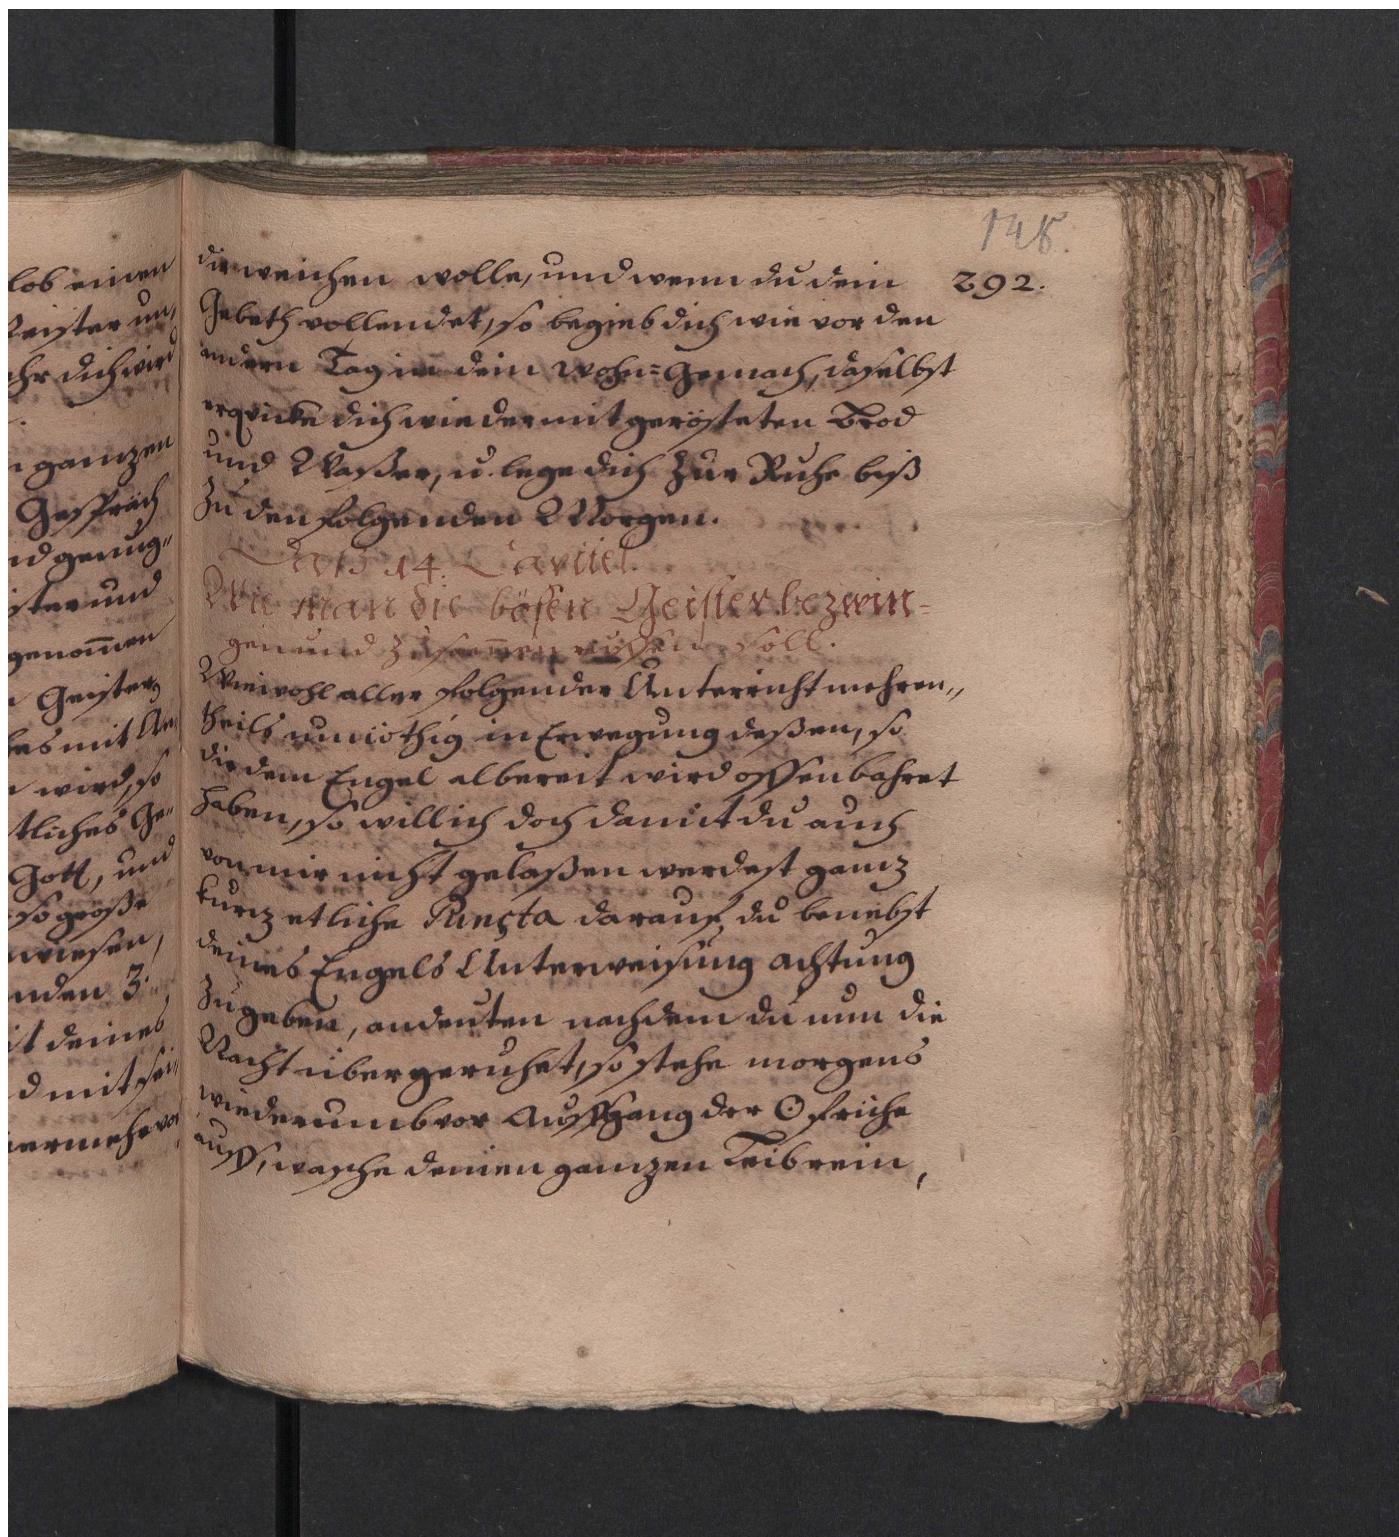 lob einen
Meister un„
ehr dich wird
ganzen
Gespräch
nd genug„
ister und
genom̄en
Geister
les mit An„
wird, so
tliches Ge„
Gott, und
so große
wiesen,
nden 3.
it deines
d mit sei„
vermehr von
148.
292.
dir weichen wolle, und wenn du dein
Gebeth vollendet, so begieb dich wie vor den
andern Tag in dein Wohn=Gemach, daselbst
erqvicke dich wieder mit gerösteten Brod
und Waßer, u. lege dich zur Ruhe biß
zu den folgenden Morgen.
Das 14. Capitel.
Wie man die bösen Geister bezwin=
gen und zusam̄en ruffen soll.
Wiewohl aller folgender Unterricht mehren„
theils unnöthig in Erwegung deßen, so
dir dein Engel albereit wird offenbahret
haben, so will ich doch damit du auch
von mir nicht gelaßen werdest ganz
kurz etliche Puncta darauf du benebst
deines Engels Unterweisung achtung
zu geben, andeuten nachdem du nun die
Nacht über geruhet, so stehe morgens
wiederumb vor Auffgang der ☉ frühe
auff, wasche deinen ganzen Leib rein,